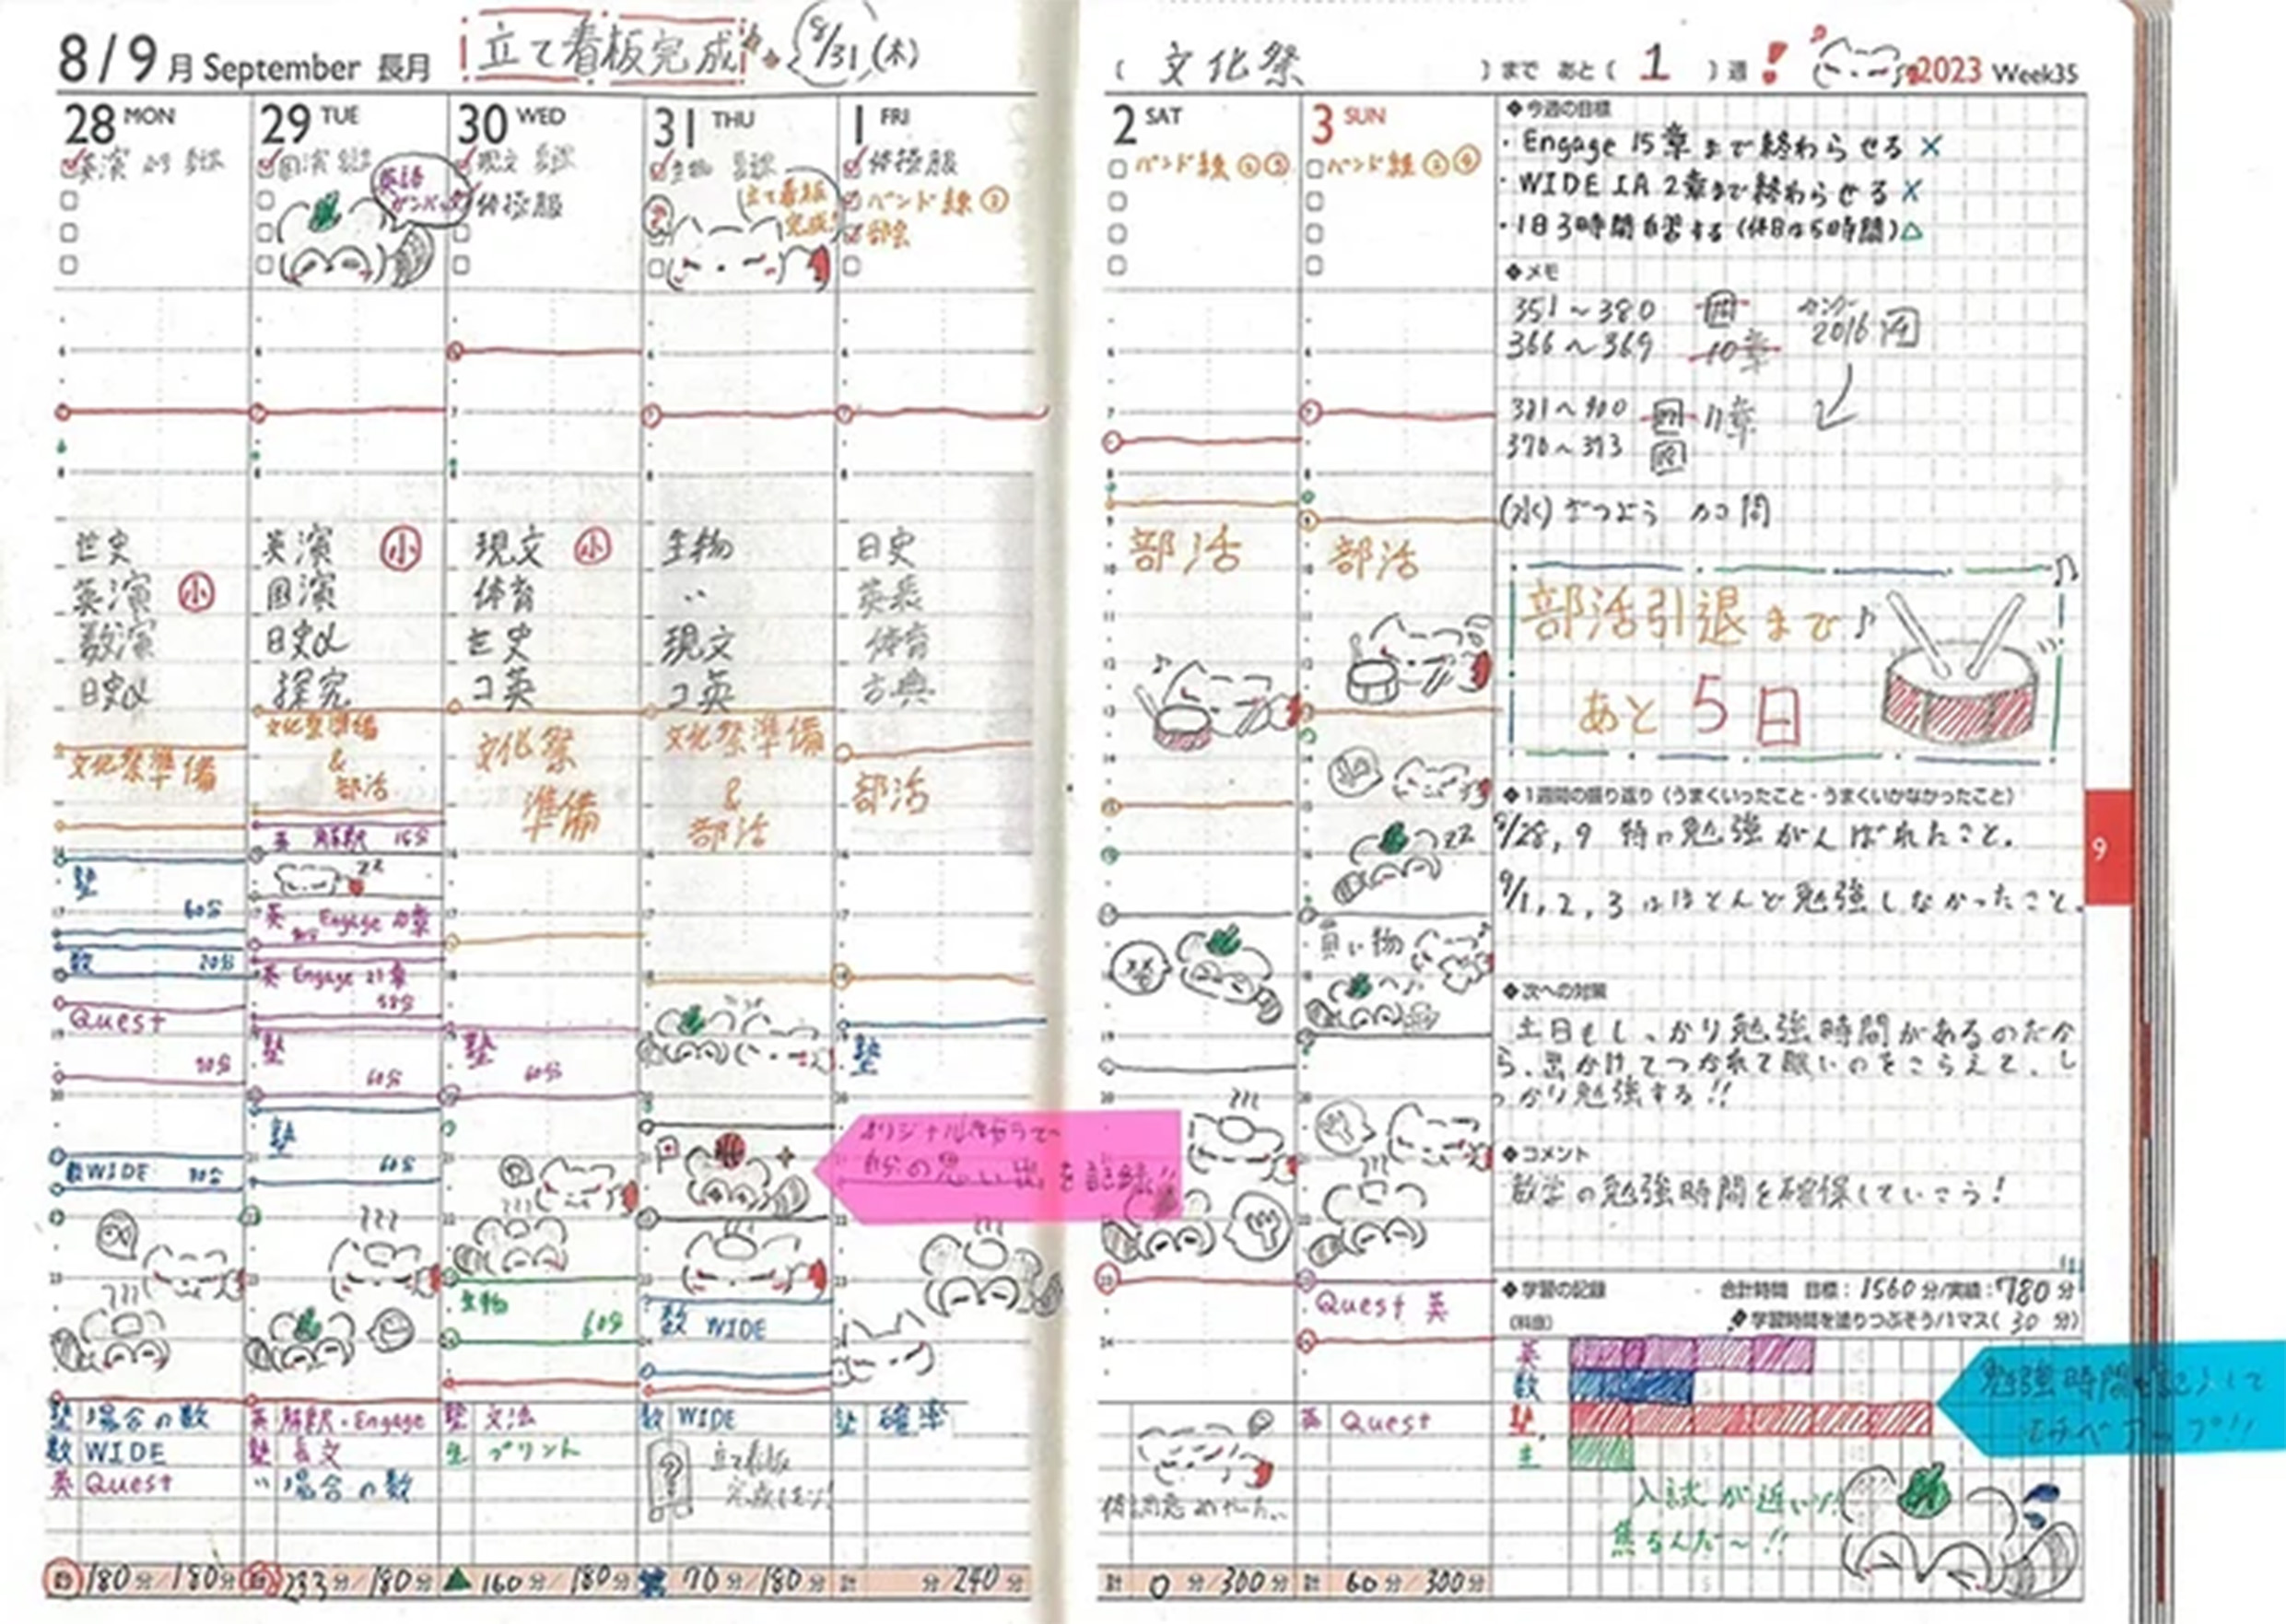 8/9月 September 長月
立て看板完成 8/31(木)
28 MON
29 TUE
30 WED
31 THU
1 FRI
国演
英語
現文
体操服
生物
立て看板
完成!
体操服
バンド練
部会
世史
英演 小
数演
日史α
文化祭準備
塾
60分
数 20分
Quest
数WIDE 30分
英演 小
国演
日史α
探究
文化祭準備
&
部活
英 解釈
英 Engage
英 Engage 21章
塾
60分
塾
60分
現文 小
体育
世史
コ英
文化祭
準備
塾
60分
生物
60分
生物
〃
現文
コ英
文化祭準備
&
部活
数 WIDE
日史
英表
体育
古典
部活
塾
塾 場合の数
数 WIDE
英 Quest
英 解釈・Engage
塾 長文
〃 場合の数
塾 文法
生 プリント
数 WIDE
立て看板
塾 確率
180分/180分
233分/180分
160分/180分
70分/180分
計 分/240分
(文化祭)まで あと(1)週! 2023 Week35
2 SAT
3 SUN
バンド練②③
バンド練
部活
部活
買い物
Quest 英
英 Quest
計 0分/300分
計 60分/300分
❖今週の目標
・Engage 15章まで終わらせる ×
・WIDE IA 2章まで終わらせる ×
・1日3時間自習する(休日は5時間)△
❖メモ
351〜380
366〜369 10章
2016
381〜400 11章
370〜373
(水)
部活引退まで♪
あと5日
❖1週間の振り返り(うまくいったこと・うまくいかなかったこと)
8/28,9 特に勉強がんばれたこと。
9/1,2,3はほとんど勉強しなかったこと。
❖次への対策
土日もしっかり勉強時間があるのだか
ら、出かけてつかれて眠いのをこらえて、し
っかり勉強する!!
❖コメント
数学の勉強時間を確保していこう!
❖学習の記録 合計時間 目標:1560分/実績:780分
(科目) 学習時間を塗りつぶそう/1マス(30分)
英
数
塾
生
入試が近いゾ!
焦るんだ〜!!
9
勉強時間を記入して
モチベアップ!!